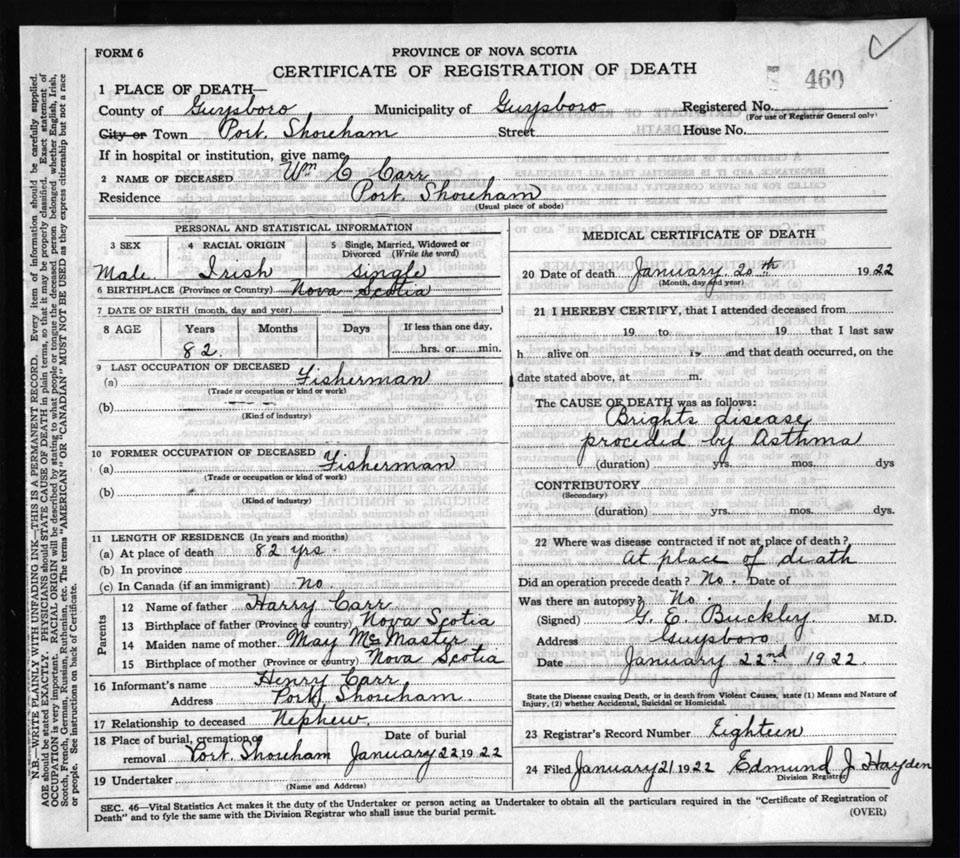 FORM 6
PROVINCE OF NOVA SCOTIA
CERTIFICATE OF REGISTRATION OF DEATH
460
1 PLACE OF DEATH—
County of Guysboro Municipality of Guysboro Registered No.
(For use of Registrar General only)
City or Town Port Shoreham Street House No.
If in hospital or institution, give name
2 NAME OF DECEASED Wm C Carr
Residence Port Shoreham
(Usual place of abode)
PERSONAL AND STATISTICAL INFORMATION
3 SEX 4 RACIAL ORIGIN 5 Single, Married, Widowed or Divorced (Write the word)
Male. Irish Single
6 BIRTHPLACE (Province or Country) Nova Scotia
7 DATE OF BIRTH (month, day and year)
8 AGE Years Months Days If less than one day,
82. hrs. or min.
9 LAST OCCUPATION OF DECEASED
(a) Fisherman
(Trade or occupation or kind or work)
(b)
(Kind of industry)
10 FORMER OCCUPATION OF DECEASED
(a) Fisherman
(Trade or occupation or kind of work)
(b)
(Kind of industry)
11 LENGTH OF RESIDENCE (In years and months)
(a) At place of death 82 yrs.
(b) In province
(c) In Canada (if an immigrant) no.
Parents
12 Name of father Harry Carr
13 Birthplace of father (Province or country) Nova Scotia
14 Maiden name of mother May McMaster
15 Birthplace of mother (Province or country) Nova Scotia
16 Informant's name Henry Carr
Address Port Shoreham.
17 Relationship to deceased Nephew.
18 Place of burial, cremation or removal Port Shoreham Date of burial January 22 1922
19 Undertaker
(Name and Address)
MEDICAL CERTIFICATE OF DEATH
20 Date of death January 20th 1922
(Month, day and year)
21 I HEREBY CERTIFY, that I attended deceased from
19 to 19 that I last saw
h alive on 19 and that death occurred, on the
date stated above, at m.
The CAUSE OF DEATH was as follows:
Brights disease
proceded by Asthma
(duration) yrs. mos. dys
CONTRIBUTORY
(Secondary)
(duration) yrs. mos. dys.
22 Where was disease contracted if not at place of death?
At place of death
Did an operation precede death? No. Date of
Was there an autopsy? No.
(Signed) G. E. Buckley. M.D.
Address Guysboro
Date January 22nd 1922.
State the Disease causing Death, or in death from Violent Causes, state (1) Means and Nature of
Injury, (2) whether Accidental, Suicidal or Homicidal.
23 Registrar's Record Number Eighteen
24 Filed January 21 1922 Edmund J. Hayden
Division Registrar
SEC. 46—Vital Statistics Act makes it the duty of the Undertaker or person acting as Undertaker to obtain all the particulars required in the "Certificate of Registration of
Death" and to fyle the same with the Division Registrar who shall issue the burial permit.
(OVER)
N.B.—WRITE PLAINLY WITH UNFADING INK—THIS IS A PERMANENT RECORD. Every item of information should be carefully supplied.
AGE should be stated EXACTLY. PHYSICIANS should STATE CAUSE OF DEATH in plain terms, so that it may be properly classified. Exact statement of
OCCUPATION is very important. RACIAL ORIGIN will be described by stating to what people or tongue the deceased person belonged, whether English, Irish,
Scotch, French, German, Russian, Ruthenian, etc. The terms "AMERICAN" OR "CANADIAN" MUST NOT BE USED as they express citizenship but not a race
or people. See instructions on back of Certificate.